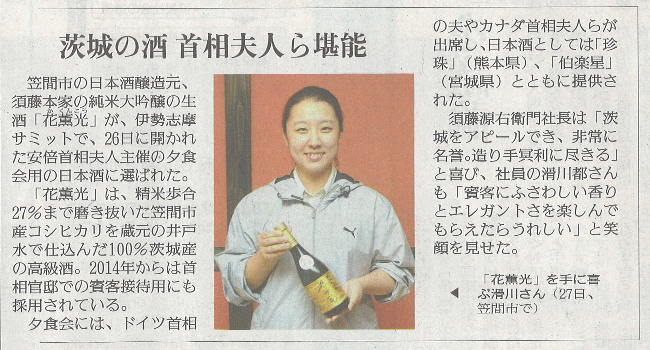 茨城の酒 首相夫人ら堪能
笠間市の日本酒醸造元、
須藤本家の純米大吟醸の生
酒「花薫光」が、伊勢志摩
かくんこう
サミットで、26日に開かれ
た安倍首相夫人主催の夕食
会用の日本酒に選ばれた。
「花薫光」は、精米歩合
27%まで磨き抜いた笠間市
産コシヒカリを蔵元の井戸
水で仕込んだ100%茨城産
の高級酒。2014年からは首
相官邸での賓客接待用にも
採用されている。
夕食会には、ドイツ首相
の夫やカナダ首相夫人らが
出席し、日本酒としては「珍
珠」(熊本県)、「伯楽星」
(宮城県)とともに提供さ
れた。
須藤源右衛門社長は「茨
城をアピールでき、非常に
名誉。造り手冥利に尽きる」
と喜び、社員の滑川都さん
も「賓客にふさわしい香り
とエレガントさを楽しんで
もらえたらうれしい」と笑
顔を見せた。
◀ 「花薫光」を手に喜
ぶ滑川さん(27日、
笠間市で)